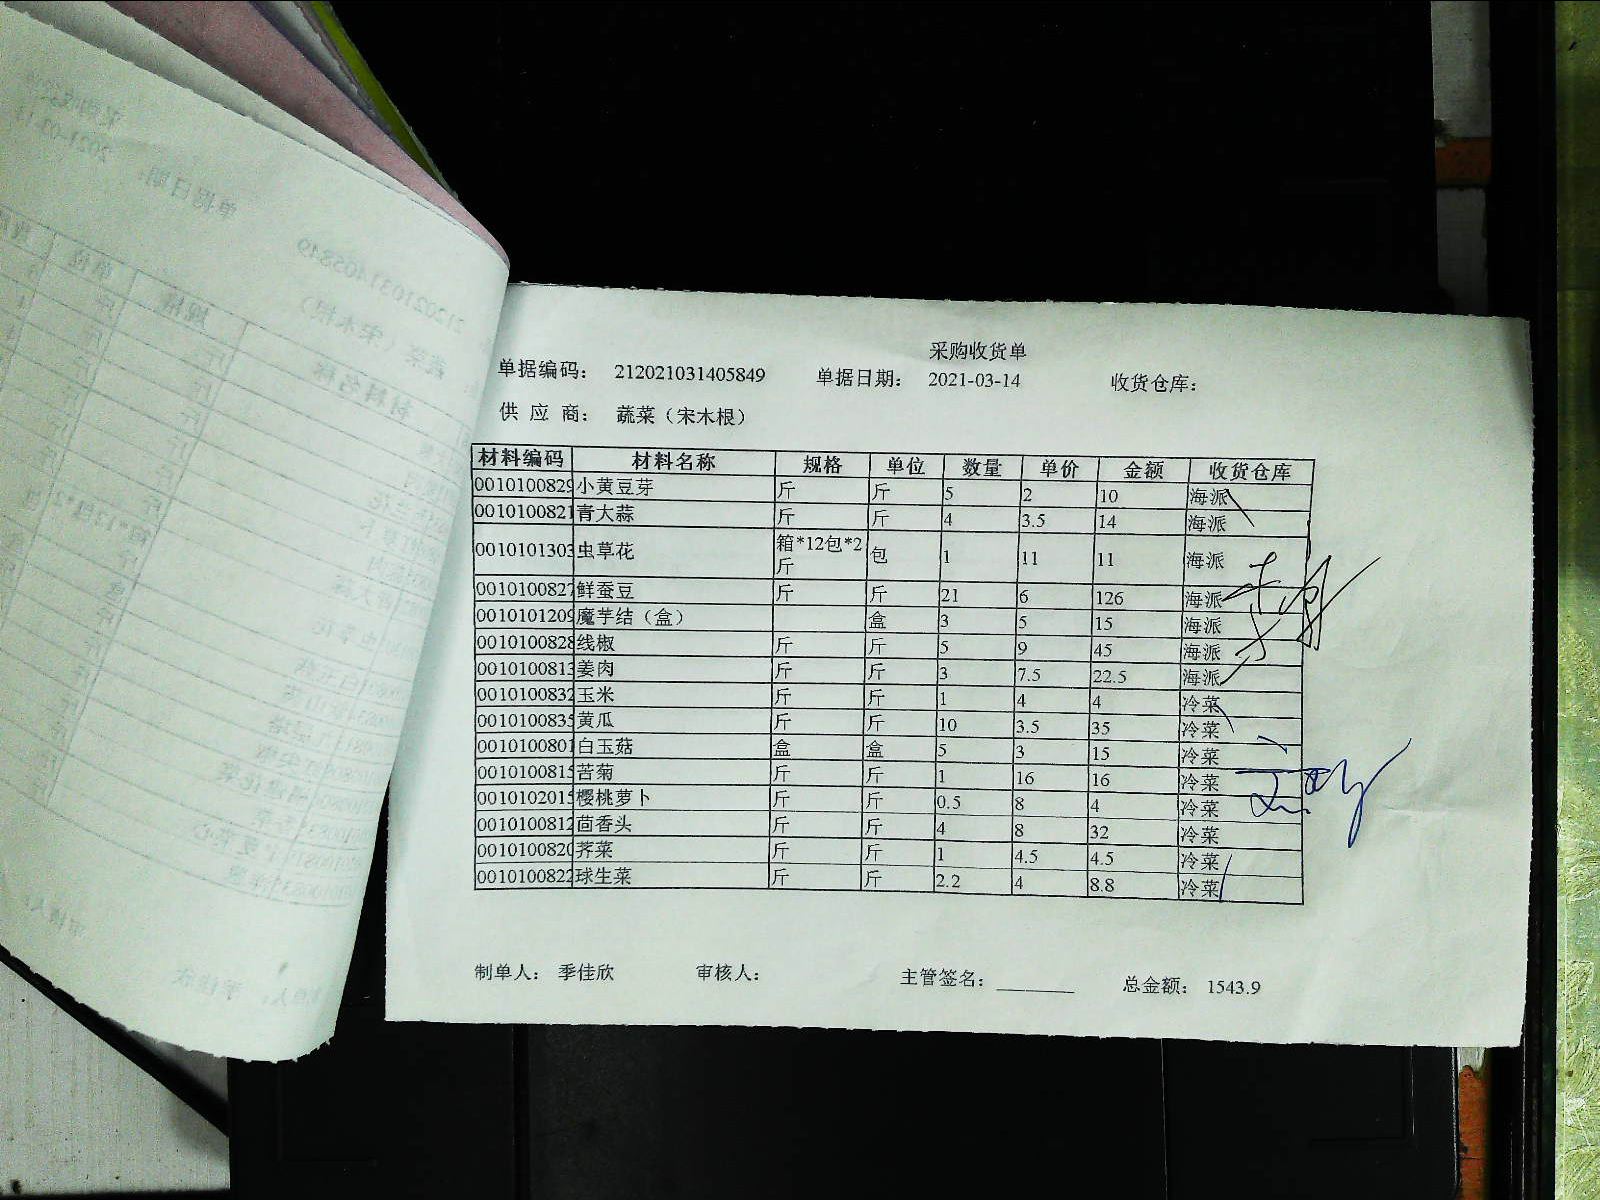 采购收货单
单据编码： 212021031405849 单据日期： 2021-03-14 收货仓库：
供 应 商： 蔬菜（宋木根）
材料编码 材料名称 规格 单位 数量 单价 金额 收货仓库
0010100829 小黄豆芽 斤 斤 5 2 10 海派
0010100821 青大蒜 斤 斤 4 3.5 14 海派
0010101303 虫草花 箱*12包*2斤 包 1 11 11 海派
0010100827 鲜蚕豆 斤 斤 21 6 126 海派
0010101209 魔芋结（盒） 盒 3 5 15 海派
0010100828 线椒 斤 斤 5 9 45 海派
0010100813 姜肉 斤 斤 3 7.5 22.5 海派
0010100832 玉米 斤 斤 1 4 4 冷菜
0010100835 黄瓜 斤 斤 10 3.5 35 冷菜
0010100801 白玉菇 盒 盒 5 3 15 冷菜
0010100815 苦菊 斤 斤 1 16 16 冷菜
0010102015 樱桃萝卜 斤 斤 0.5 8 4 冷菜
0010100812 茴香头 斤 斤 4 8 32 冷菜
0010100820 荠菜 斤 斤 1 4.5 4.5 冷菜
0010100822 球生菜 斤 斤 2.2 4 8.8 冷菜
制单人： 季佳欣 审核人： 主管签名：________ 总金额： 1543.9